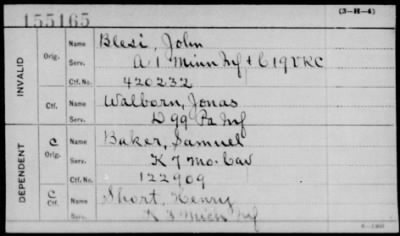 155165
(3-H-4)
INVALID
Orig.
Name Blesi, John
Serv. A 1 Minn Inf + C 19 V R C
Ctf. No. 420232
Ctf.
Name Walborn, Jonas
Serv. D 99 Pa Inf
DEPENDENT
C
Orig.
Name Baker, Samuel
Serv. K 7 Mo. Cav
Ctf. No. 122909
C
Ctf.
Name Short, Henry
Serv. K 3 Mich Inf